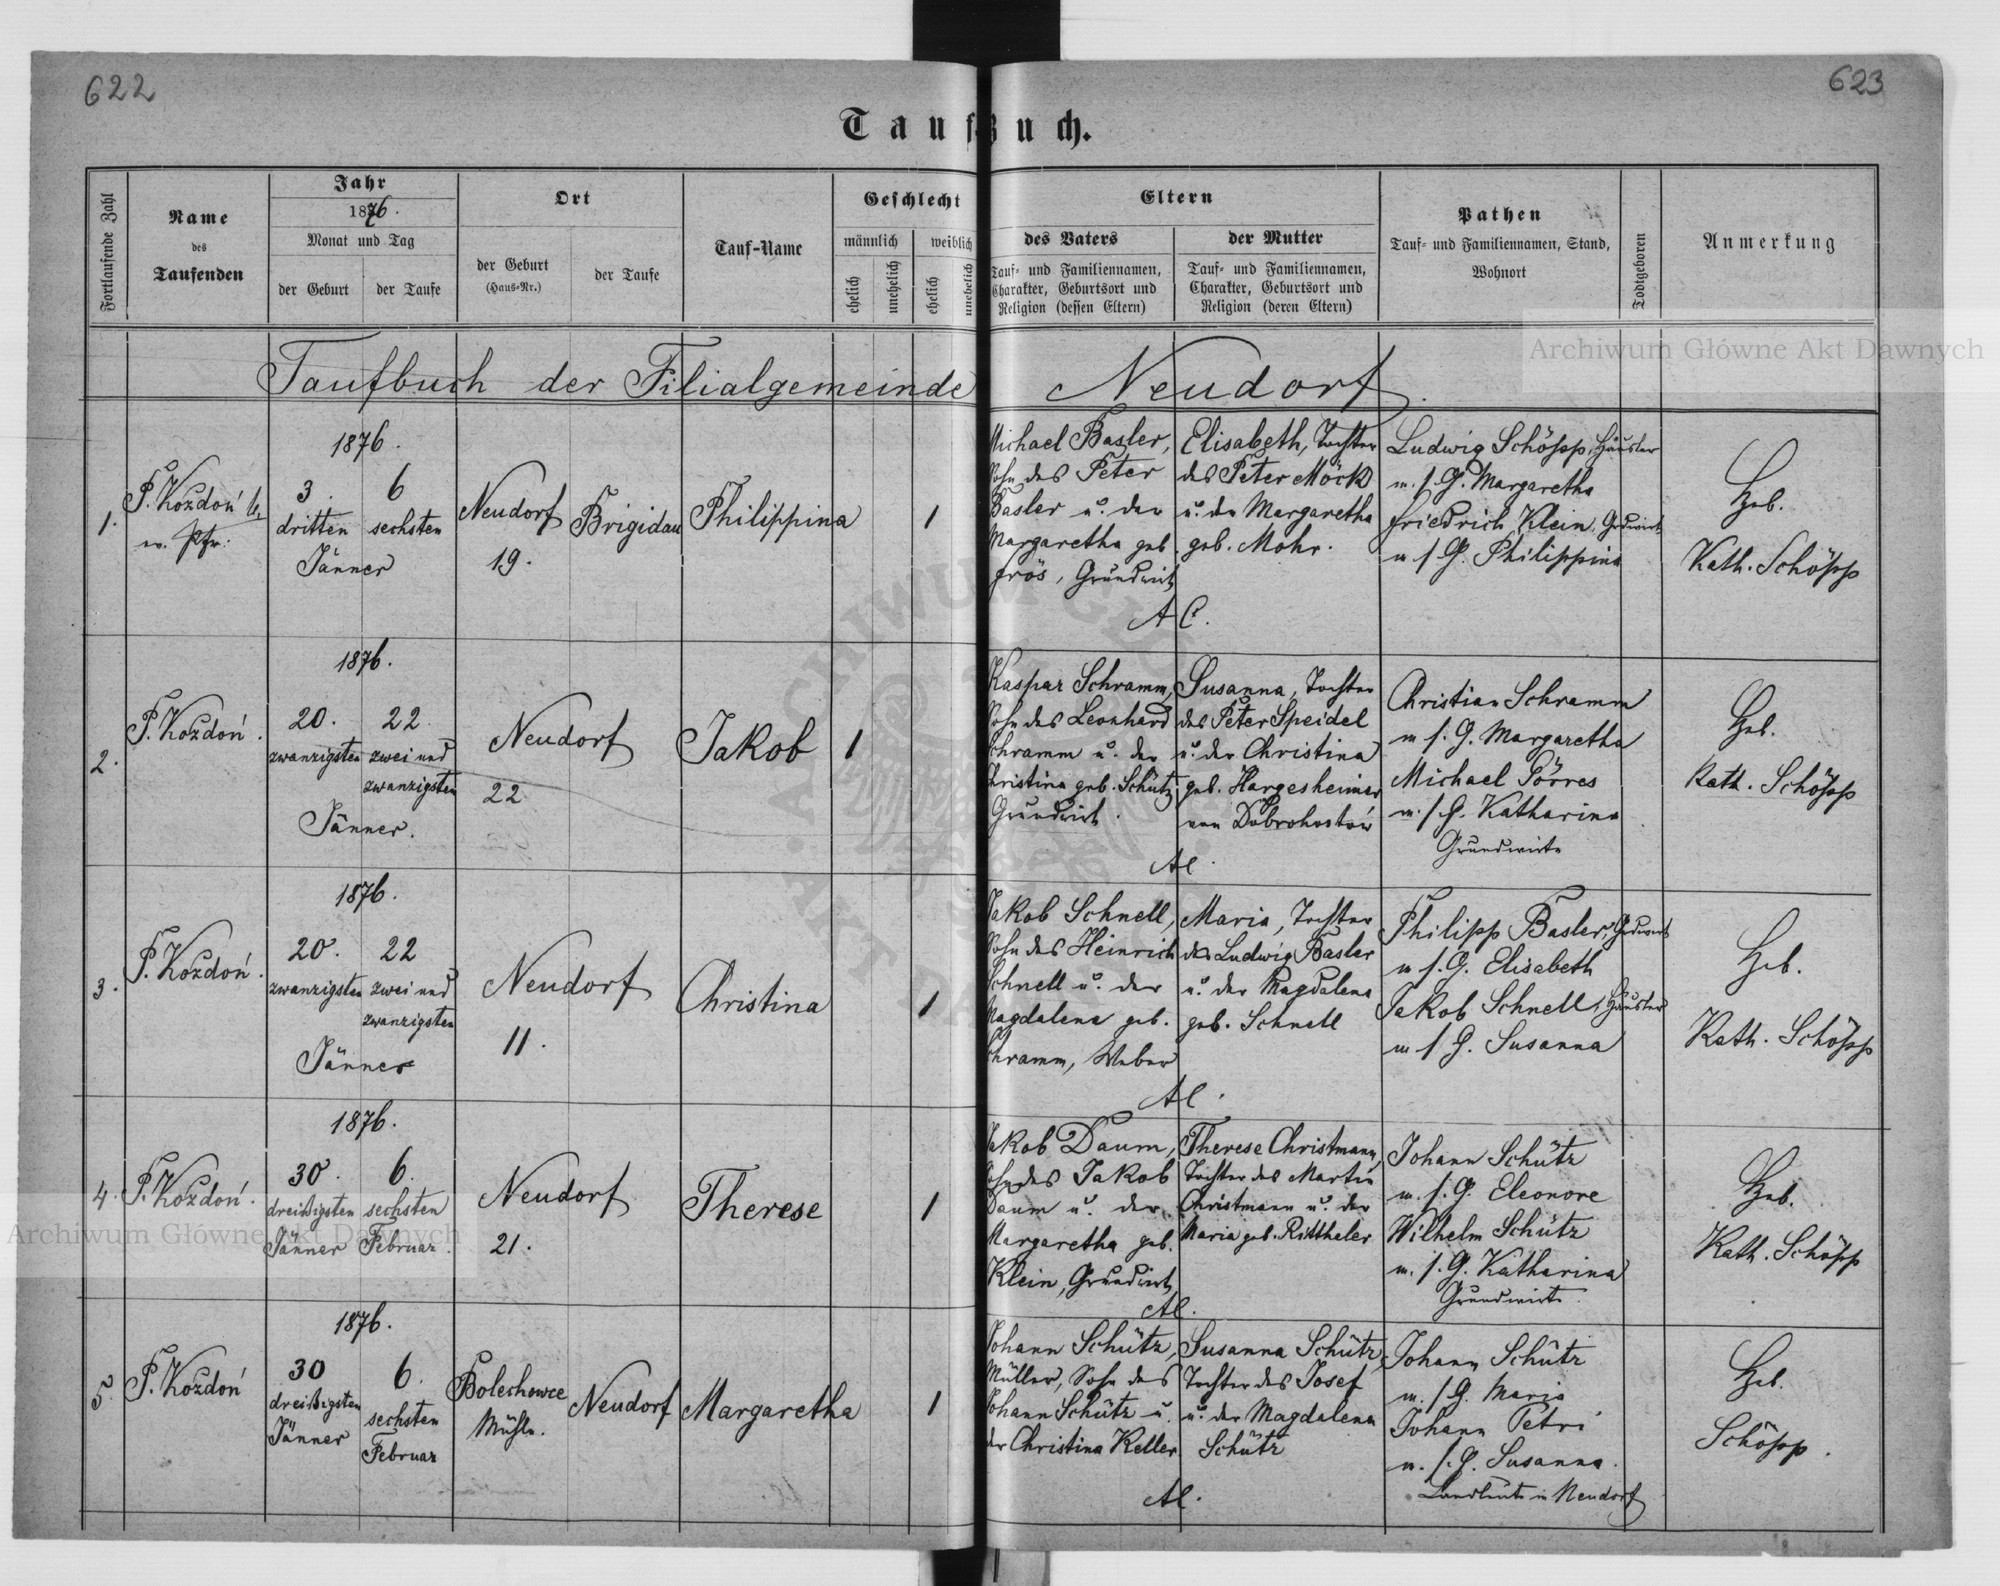 622
623
Taufbuch.
Fortlaufende Zahl
Name
des
Taufenden
Jahr
1876.
Monat und Tag
der Geburt
der Taufe
Ort
der Geburt
(Haus=Nr.)
der Taufe
Tauf=Name
Geschlecht
männlich
weiblich
ehelich
unehelich
ehelich
unehelich
Eltern
des Vaters
Tauf= und Familiennamen,
Charakter, Geburtsort und
Religion (dessen Eltern)
der Mutter
Tauf= und Familiennamen,
Charakter, Geburtsort und
Religion (deren Eltern)
Pathen
Tauf= und Familiennamen, Stand,
Wohnort
Todtgeboren
Anmerkung
Archiwum Główne Akt Dawnych
Taufbuch der Filialgemeinde Neudorf.
1.
P. Kozdoń
ev. Pfr.
1876.
3.
dritten
6
sechsten
Jänner
Neudorf
19.
Brigidau
Philippina
1
Michael Basler,
Sohn des Peter
Basler u. der
Margaretha geb.
Frös, Grundwirt
Elisabeth, Tochter
des Peter Möck
u. der Margaretha
geb. Mohr.
A C.
Ludwig Schöpp, Häusler
m. s. G. Margaretha
Friedrich Klein, Grdwirt
m s. G. Philippina
Heb.
Kath. Schöpp
2.
P. Kozdoń.
1876.
20.
zwanzigsten
22
zwei und
zwanzigsten
Jänner.
Neudorf
22
Jakob
1
Kaspar Schramm,
Sohn des Leonhard
Schramm u. der
Christina geb. Schütz
Grundwirt.
Susanna, Tochter
des Peter Speidel
u. der Christina
geb. Hargesheimer
von Dobrohostów
AC.
Christian Schramm
m s. G. Margaretha
Michael Pörres
m. s. G. Katharina
Grundwirte
Heb.
Kath. Schöpp
3.
P. Kozdoń.
1876.
20.
zwanzigsten
22
zwei und
zwanzigsten
Jänner
Neudorf
11.
Christina
1
Jakob Schnell,
Sohn des Heinrich
Schnell u. der
Magdalena geb.
Schramm, Weber
Maria, Tochter
des Ludwig Basler
u. der Magdalena
geb. Schnell
AC.
Philipp Basler, Grdwirt
m s. G. Elisabeth
Jakob Schnell, Häusler
m s. G. Susanna
Heb.
Kath. Schöpp
4.
P. Kozdoń.
1876.
30.
dreißigsten
Jänner
6.
sechsten
Februar.
Neudorf
21.
Therese
1
Jakob Daum,
Sohn des Jakob
Daum u. der
Margaretha geb.
Klein, Grundwirt
Therese Christmann,
Tochter des Martin
Christmann u. der
Maria geb. Rittheler
AC.
Johann Schütz
m. s. G. Eleonore
Wilhelm Schütz
m. s. G. Katharina
Grundwirte.
Heb.
Kath. Schöpp
Archiwum Główne Akt Dawnych
5.
P. Kozdoń
1876.
30
dreißigsten
Jänner
6.
sechsten
Februar
Bolechowce
Mühle.
Neudorf
Margaretha
1
Johann Schütz,
Müller, Sohn des
Johann Schütz u.
der Christina Keller
Susanna Schütz,
Tochter des Josef
u. der Magdalena
Schütz
AC.
Johann Schütz
m. s. G. Maria
Johann Petri
m. s. G. Susanna.
Landleute in Neudorf
Heb.
Schöpp.